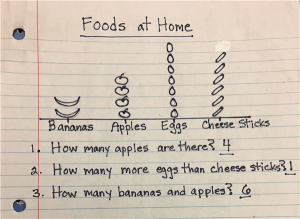 Foods at Home
Bananas Apples Eggs Cheese Sticks
1. How many apples are there? 4
2. How many more eggs than cheese sticks? 1
3. How many bananas and apples? 6